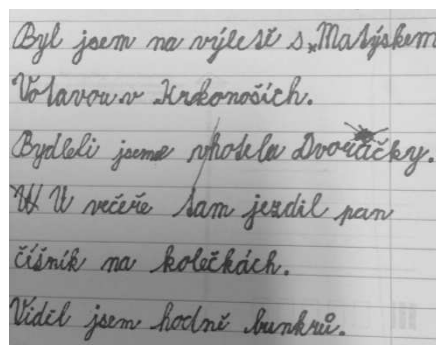 Byl jsem na výletě s Matýskem
Votavou v Krkonoších.
Bydleli jsme v hotelu Dvoračky.
U večeře tam jezdil pan
číšník na kolečkách.
Viděl jsem hodně bunkrů.